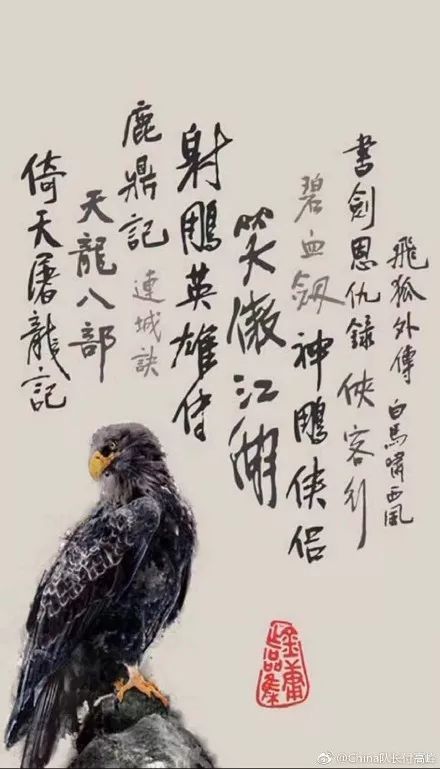 飛狐外傳
白馬嘯西風
書劍恩仇錄
俠客行
碧血劍
神鵰俠侶
笑傲江湖
射鵰英雄傳
鹿鼎記
連城訣
天龍八部
倚天屠龍記
金庸
作品集
@China队长付高峰